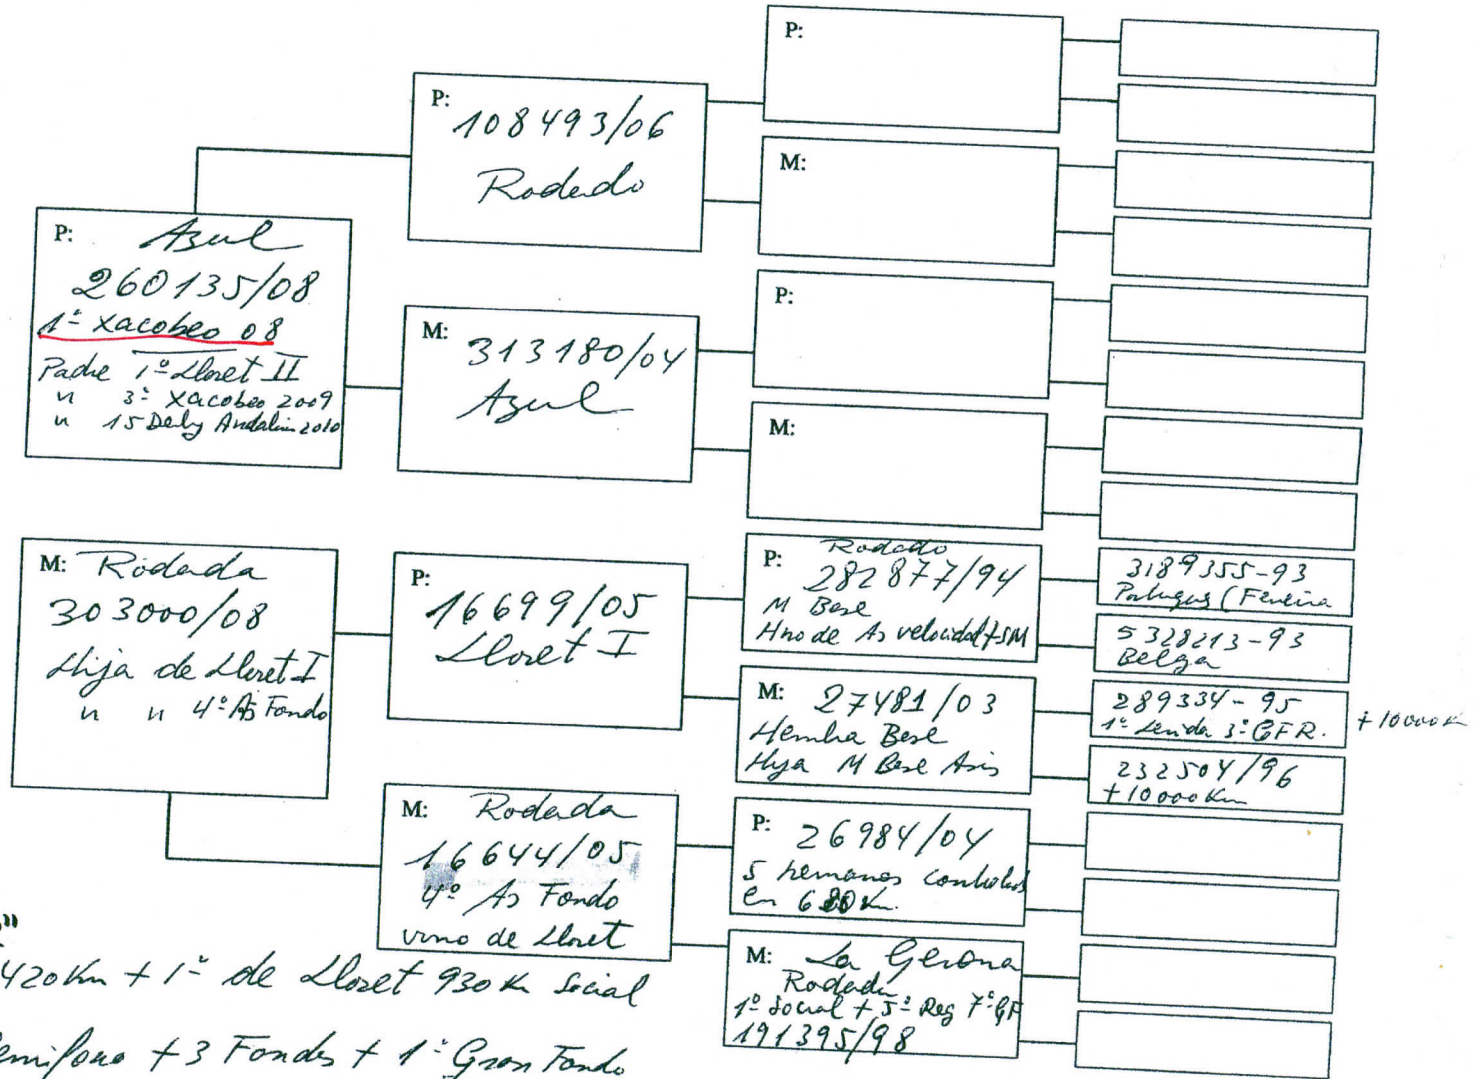 P: Azul
260135/08
1º Xacobeo 08
Padre 1º Lloret II
" 3º Xacobeo 2009
" 15 Derby Andalucia 2010
M: Rodada
303000/08
Hija de Lloret I
" " 4º As Fondo
P:
108493/06
Rodado
M: 313180/04
Azul
P:
16699/05
Lloret I
M: Rodada
16644/05
4º As Fondo
vino de Lloret
P:
M:
P:
M:
P: Rodado
282877/94
M Base
Hno de As velocidad + SM
M: 27481/03
Hembra Base
Hija M Base Asis
P: 26984/04
5 hermanos controlados
en 680 Km.
M: La Gerona
Rodada
1º Social + 5º Reg 7º GF
191395/98
3189355-93
Portugues (Ferreira
5328213-93
Belga
289334-95
1º Lerida 3º GFR. + 10000 Km
232504/96
+ 10000 Km
"
420 Km + 1º de Lloret 930 Km Social
+ 3 Fondos + 1º Gran Fondo